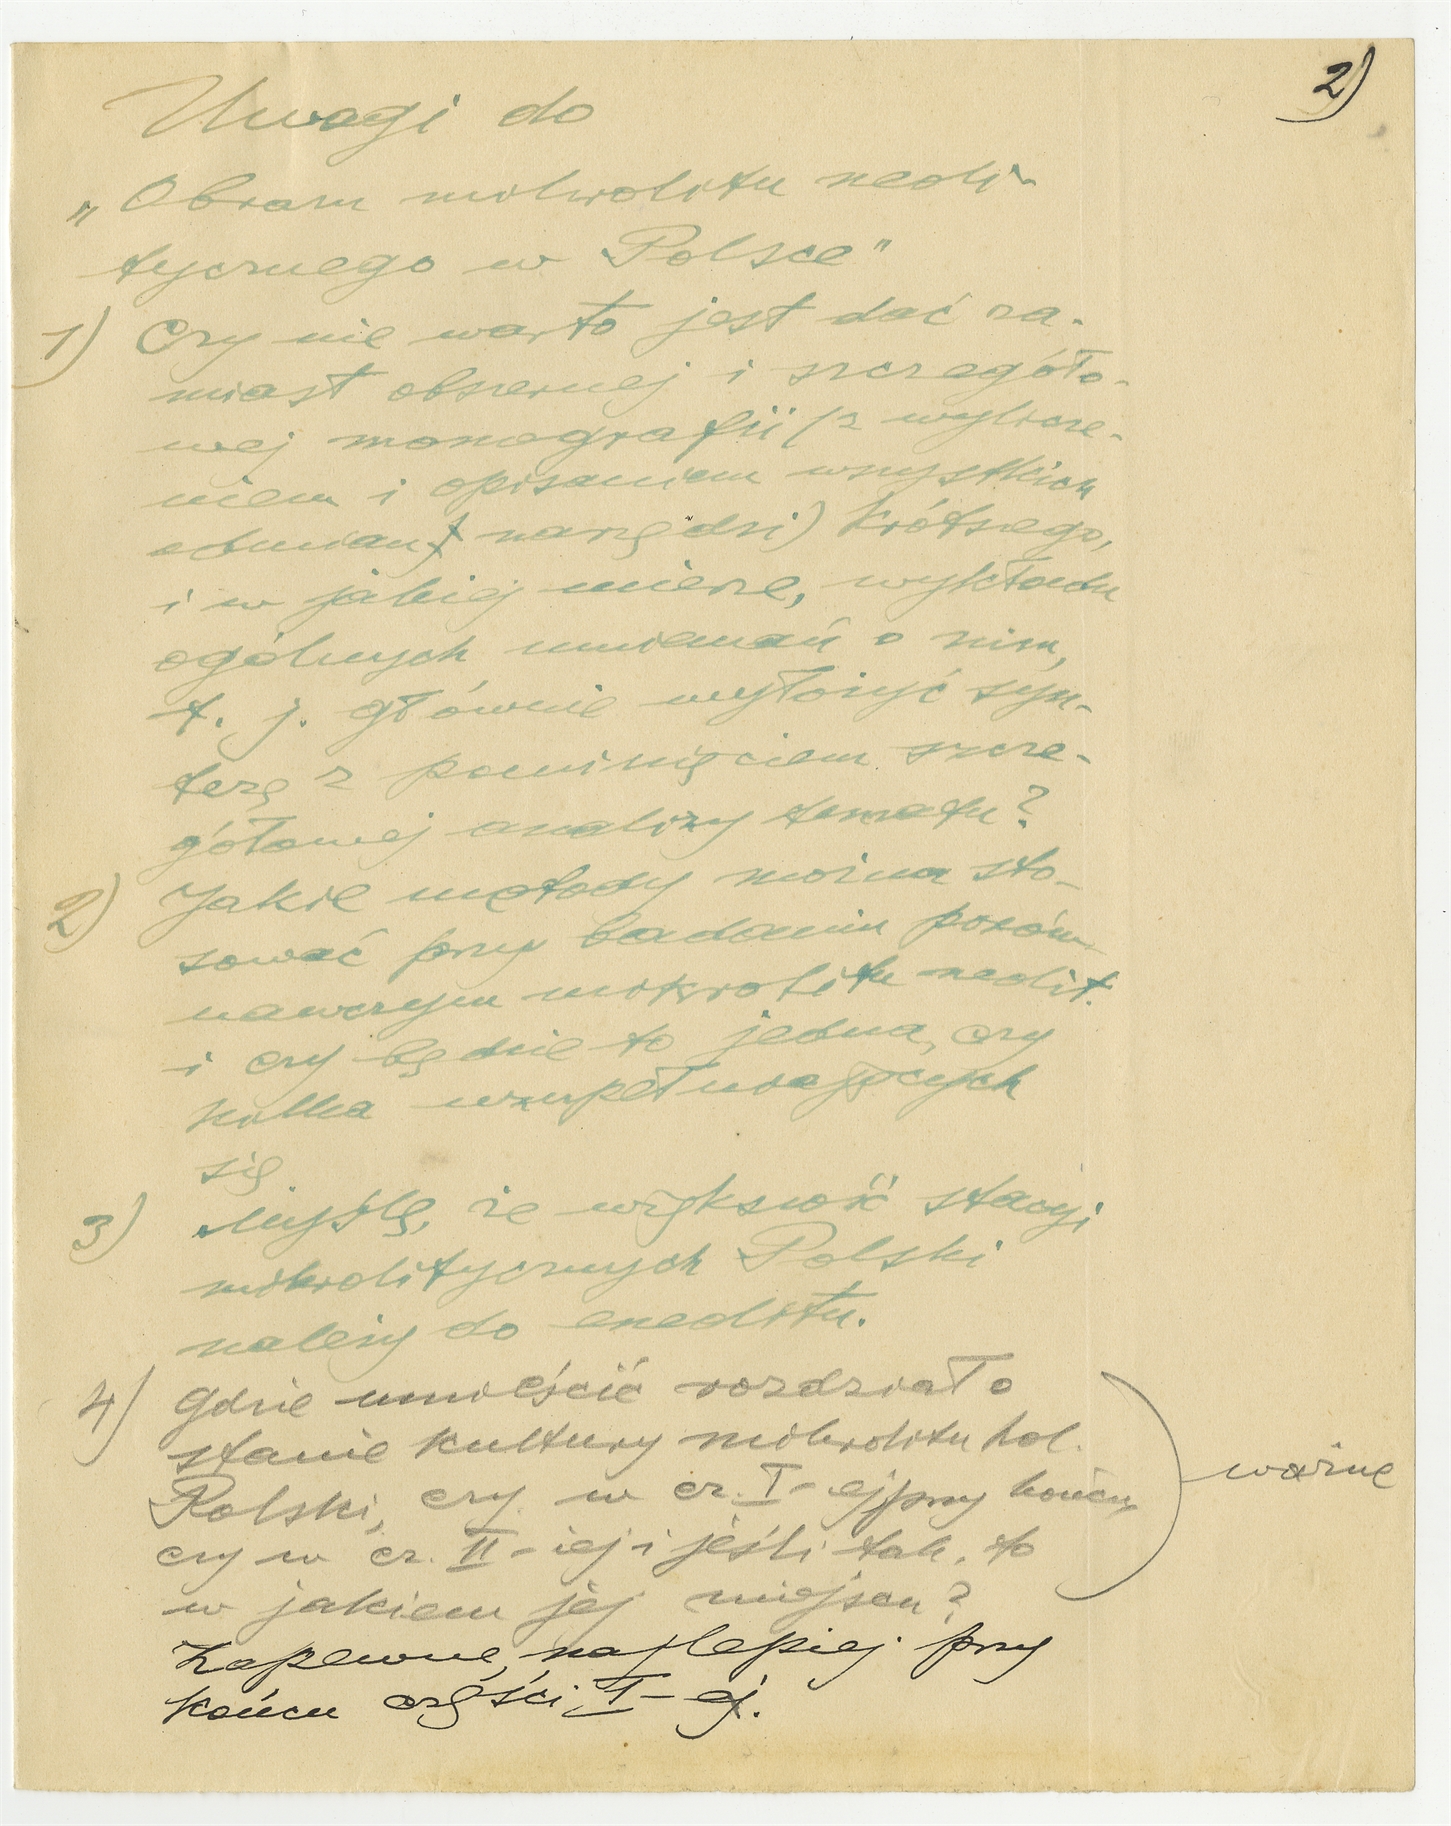 2)
Uwagi do
„Obrazu mikrolitu neoli-
tycznego w Polsce"
1) Czy nie warto jest dać za-
miast obszernej i szczegóło-
wej monografii (z wylicze-
niem i opisaniem wszystkich
odmian narzędzi) krótszego,
i w jakiej mierze, wykładu
ogólnych mniemań o nim,
t. j. głównie wyłożyć syn-
tezę z pominięciem szcze-
gółowej analizy tematu?
2) Jakie metody można sto-
sować przy badaniu porów-
nawczym mikrolitu neolit.
i czy będzie to jedna, czy
kilka uzupełniających
się
3) Myślę, że większość stacyj
mikrolitycznych Polski
należy do eneolitu.
4) Gdzie umieścić rozdział o
stanie kultury mikrolitu hol.
Polski, czy w cz. I-ej przy końcu,
czy w cz. II-iej i jeśli tak, to
w jakiem jej miejscu?
ważne
Zapewne, najlepiej przy
końcu części I-ej.